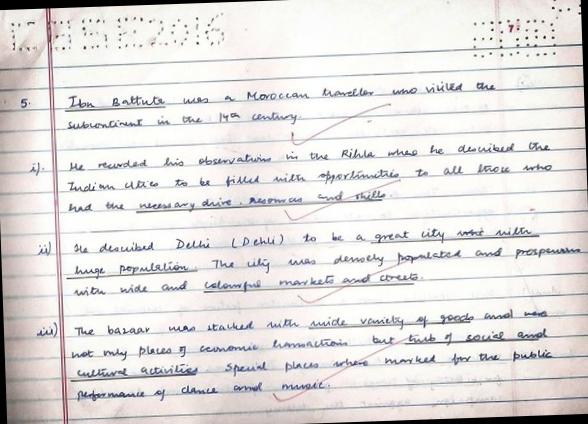 7
5. Ibn Battuta was a Moroccan traveller who visited the
subcontinent in the 14th century.
i). He recorded his observations in the Rihla where he described the
Indian cities to be filled with opportunities to all those who
had the necessary drive, resources and skills.
ii) He described Delhi (Dehli) to be a great city with
huge population. The city was densely populated and prosperous
with wide and colourful markets and streets.
iii) The bazaar was stacked with wide variety of goods and were
not only places of economic transactions but hub of social and
cultural activities. Special places where marked for the public
performance of dance and music.